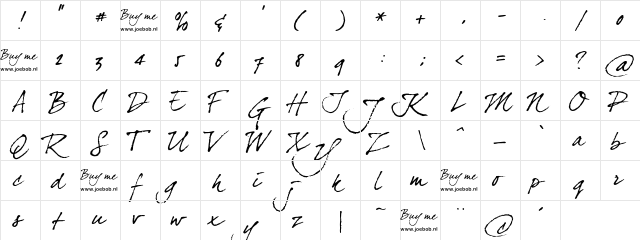 ! " # Buy me www.joebob.nl % & ' ( ) * + , - . / 0
Buy me www.joebob.nl 2 3 4 5 6 7 8 9 : ; < = > ? @
A B C D E F G H I J K L M N O P
Q R S T U V W X Y Z \ ^ _ ` a b
c d Buy me www.joebob.nl f g h i j k l m Buy me www.joebob.nl o p q r
s t u v w x y z | ~ Buy me www.joebob.nl ¨ © ´